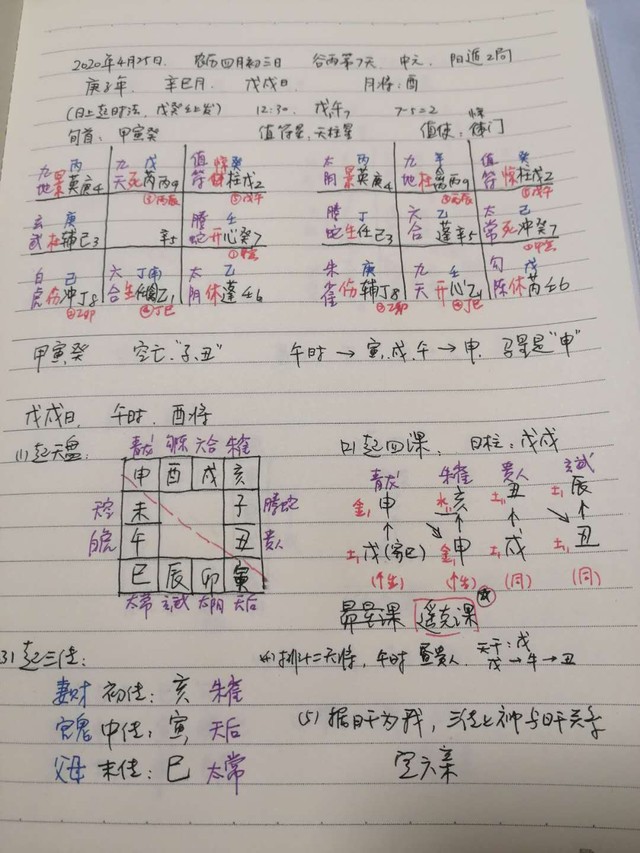 2020年4月25日. 农历四月初三日 谷雨第7天. 中元. 阳遁2局
庚子年. 辛巳月. 戊戌日. 月将:酉
(日上起时法, 戊癸壬上发) 12:30. 戊午 7-5=2
旬首: 甲寅癸 值符星:天柱星 值使: 惊门
九 丙 九 戊 值 惊 癸
地 景 英庚4 天 死 芮丙9 符 柱戊2
玄 庚 螣 壬
武 杜 辅己3 辛5 蛇 开心癸7
白 己 六 丁 太 乙
虎 伤 冲丁8 合 生 任乙1 阴 休蓬壬6
太 丙 九 辛 值 癸
阴 景 英庚4 地 杜 丙9 符 惊柱戊2
螣 丁 六 乙 太 己
蛇 生任己3 合 蓬辛5 常 死冲癸7
朱 庚 九 壬 勾 戊
雀 伤辅丁8 天 开心乙 陈 休芮壬6
甲寅癸 空亡:"子、丑" 午时→寅、戌、午→申. 马星是"申"
戊戌日. 午时. 酉将
(1)起天盘: (2)起四课. 日柱: 戊戌
青龙 勾陈 六合 朱雀
申 酉 戌 亥
天空 未 子 螣蛇
白虎 午 丑 贵人
巳 辰 卯 寅
太常 玄武 太阴 天后
青龙 朱雀 贵人 玄武
金 申 水 亥 土 丑 土 辰
土 戊(寄巳) 金 申 土 戌 土 丑
(个生) (个生) (同) (同)
昴星课 遥克课
(3)起三传: (4)排十二天将, 午时 昼贵人. 天干:戊
戊→牛→丑
妻财 初传: 亥 朱雀
官鬼 中传: 寅 天后
父母 末传: 巳 太常
(5)据日干为我, 三传上神与日干关系
定六亲